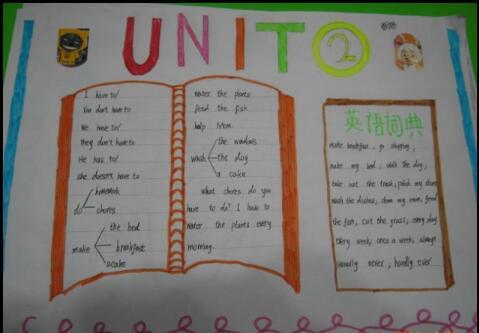 UNIT 2
I have to/
You don't have to
We have to/
they don't have to
He has to/
she doesn't have to
homework
do
chores
the bed
make
breakfast
a cake
water the plants
feed the fish
help Mom
the windows
wash the dog
a cake
what chores do you
have to do? I have to
water the plants every
morning.
英语词典
make breakfast, go shopping,
make my bed, walk the dog,
take out the trash, polish my shoes
wash the dishes, clean my room, feed
the fish, cut the grass, every day
every week, once a week, always
usually never, hardly ever